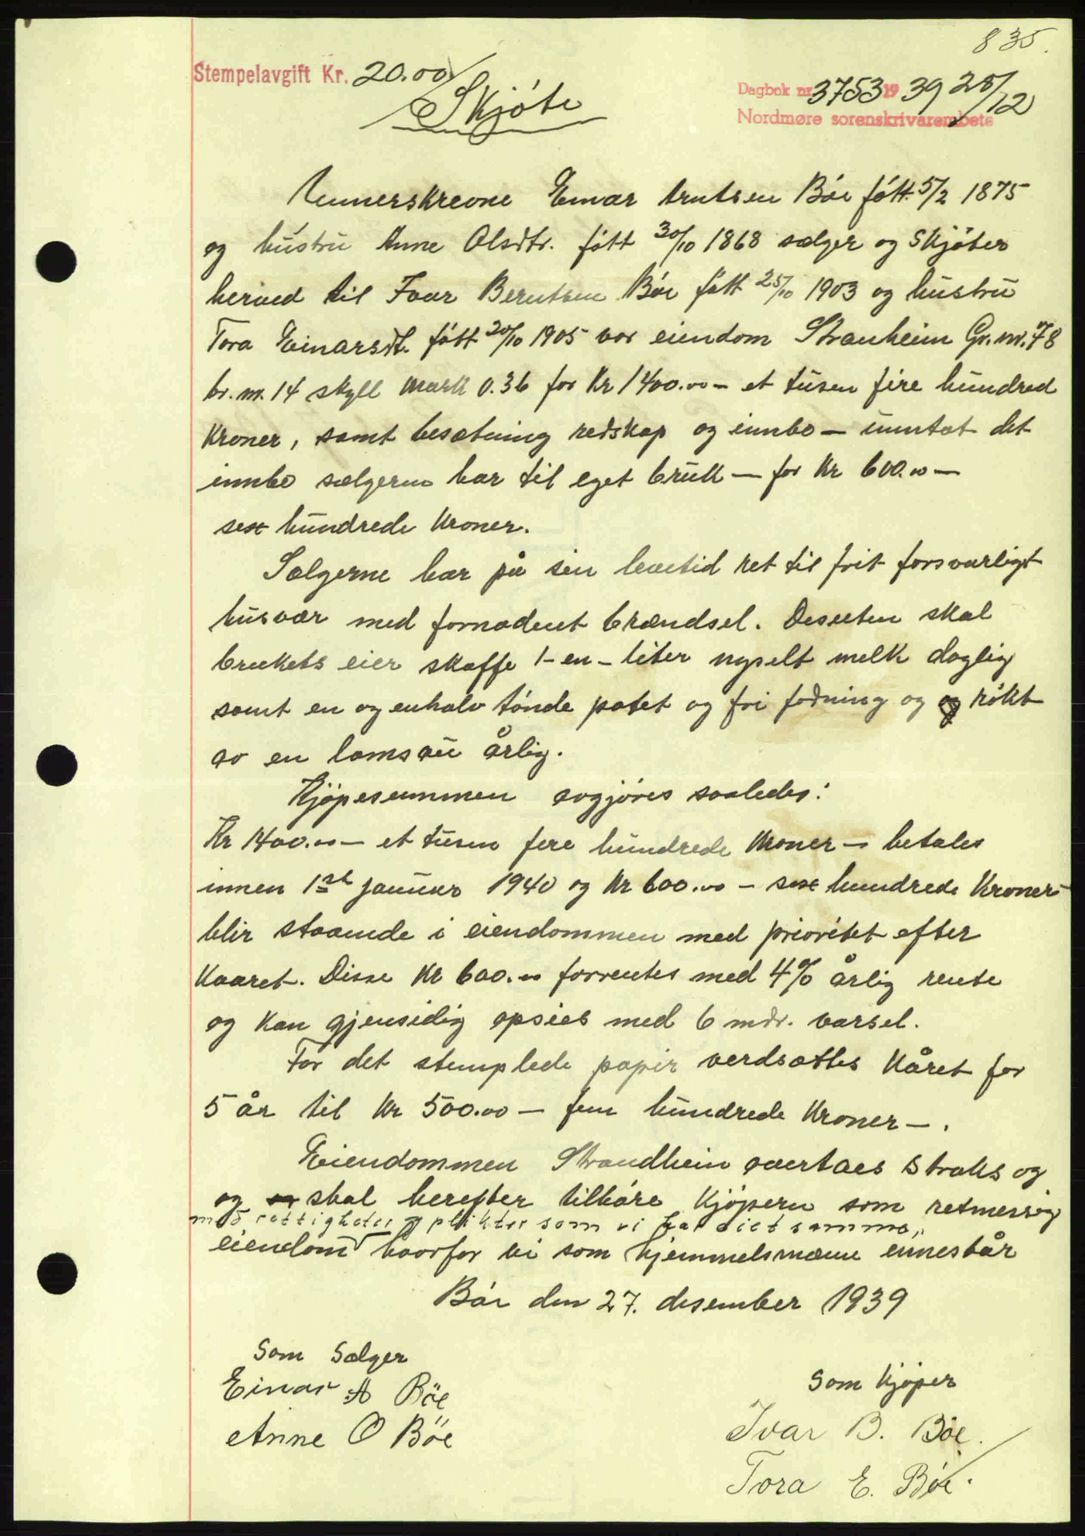 835.
Stempelavgift Kr. 20.00
Skjøte
Dagbok nr. 3753 19 39 28/12
Nordmøre sorenskrivarembete
Unnerskrevne Einar Arntsen Böe fött 5/2 1875
og hustru Anne Olsdtr. fött 30/10 1868 sælger og skjöter
herved til Ivar Berntsen Böe fött 25/10 1903 og hustru
Tora Einarsdt. fött 20/10 1905 vor eiendom Stranheim Gr.nr. 78
br.nr. 14 skyll mark 0.36 for Kr 1400.00 – et tusen fire hundred
Kroner, samt besætning redskap og innbo – unntat det
innbo sælgerne har til eget bruk – for Kr 600.00 –
sex hundrede Kroner.
Sælgerne har på sin levetid ret til frit forsvarligt
husvær med fornødent brændsel. Desuten skal
brukets eier skaffe 1 – en – liter nysilt melk daglig
samt en og enhalv tönde potet og fri fodning og og rökt
av en lamsau årlig.
Kjöpesummen avgjöres saaledes:
Kr 1400.00 – et tusen fire hundrede Kroner – betales
innen 1ste januar 1940 og Kr 600.00 – sex hundrede Kroner –
blir staaende i eiendommen med prioritet efter
Kaaret. Disse Kr 600.00 forrentes med 4% årlig rente
og kan gjensidig opsies med 6 mdr. varsel.
For det stemplede papir verdsættes Kåret for
5 år til Kr 500.00 – fem hundrede Kroner – .
Eiendommen Strandheim overtaes straks og
og skal herefter tilhöre Kjöperen som retmessig
med rettigheter og plikter som vi har eiet samme,
eiendom hvorfor vi som hjemmelsmænn innestår
Böe den 27. desember 1939
Som Sælger
Einar A Böe
Anne O Böe
Som Kjöper
Ivar B. Böe.
Tora E. Böe.